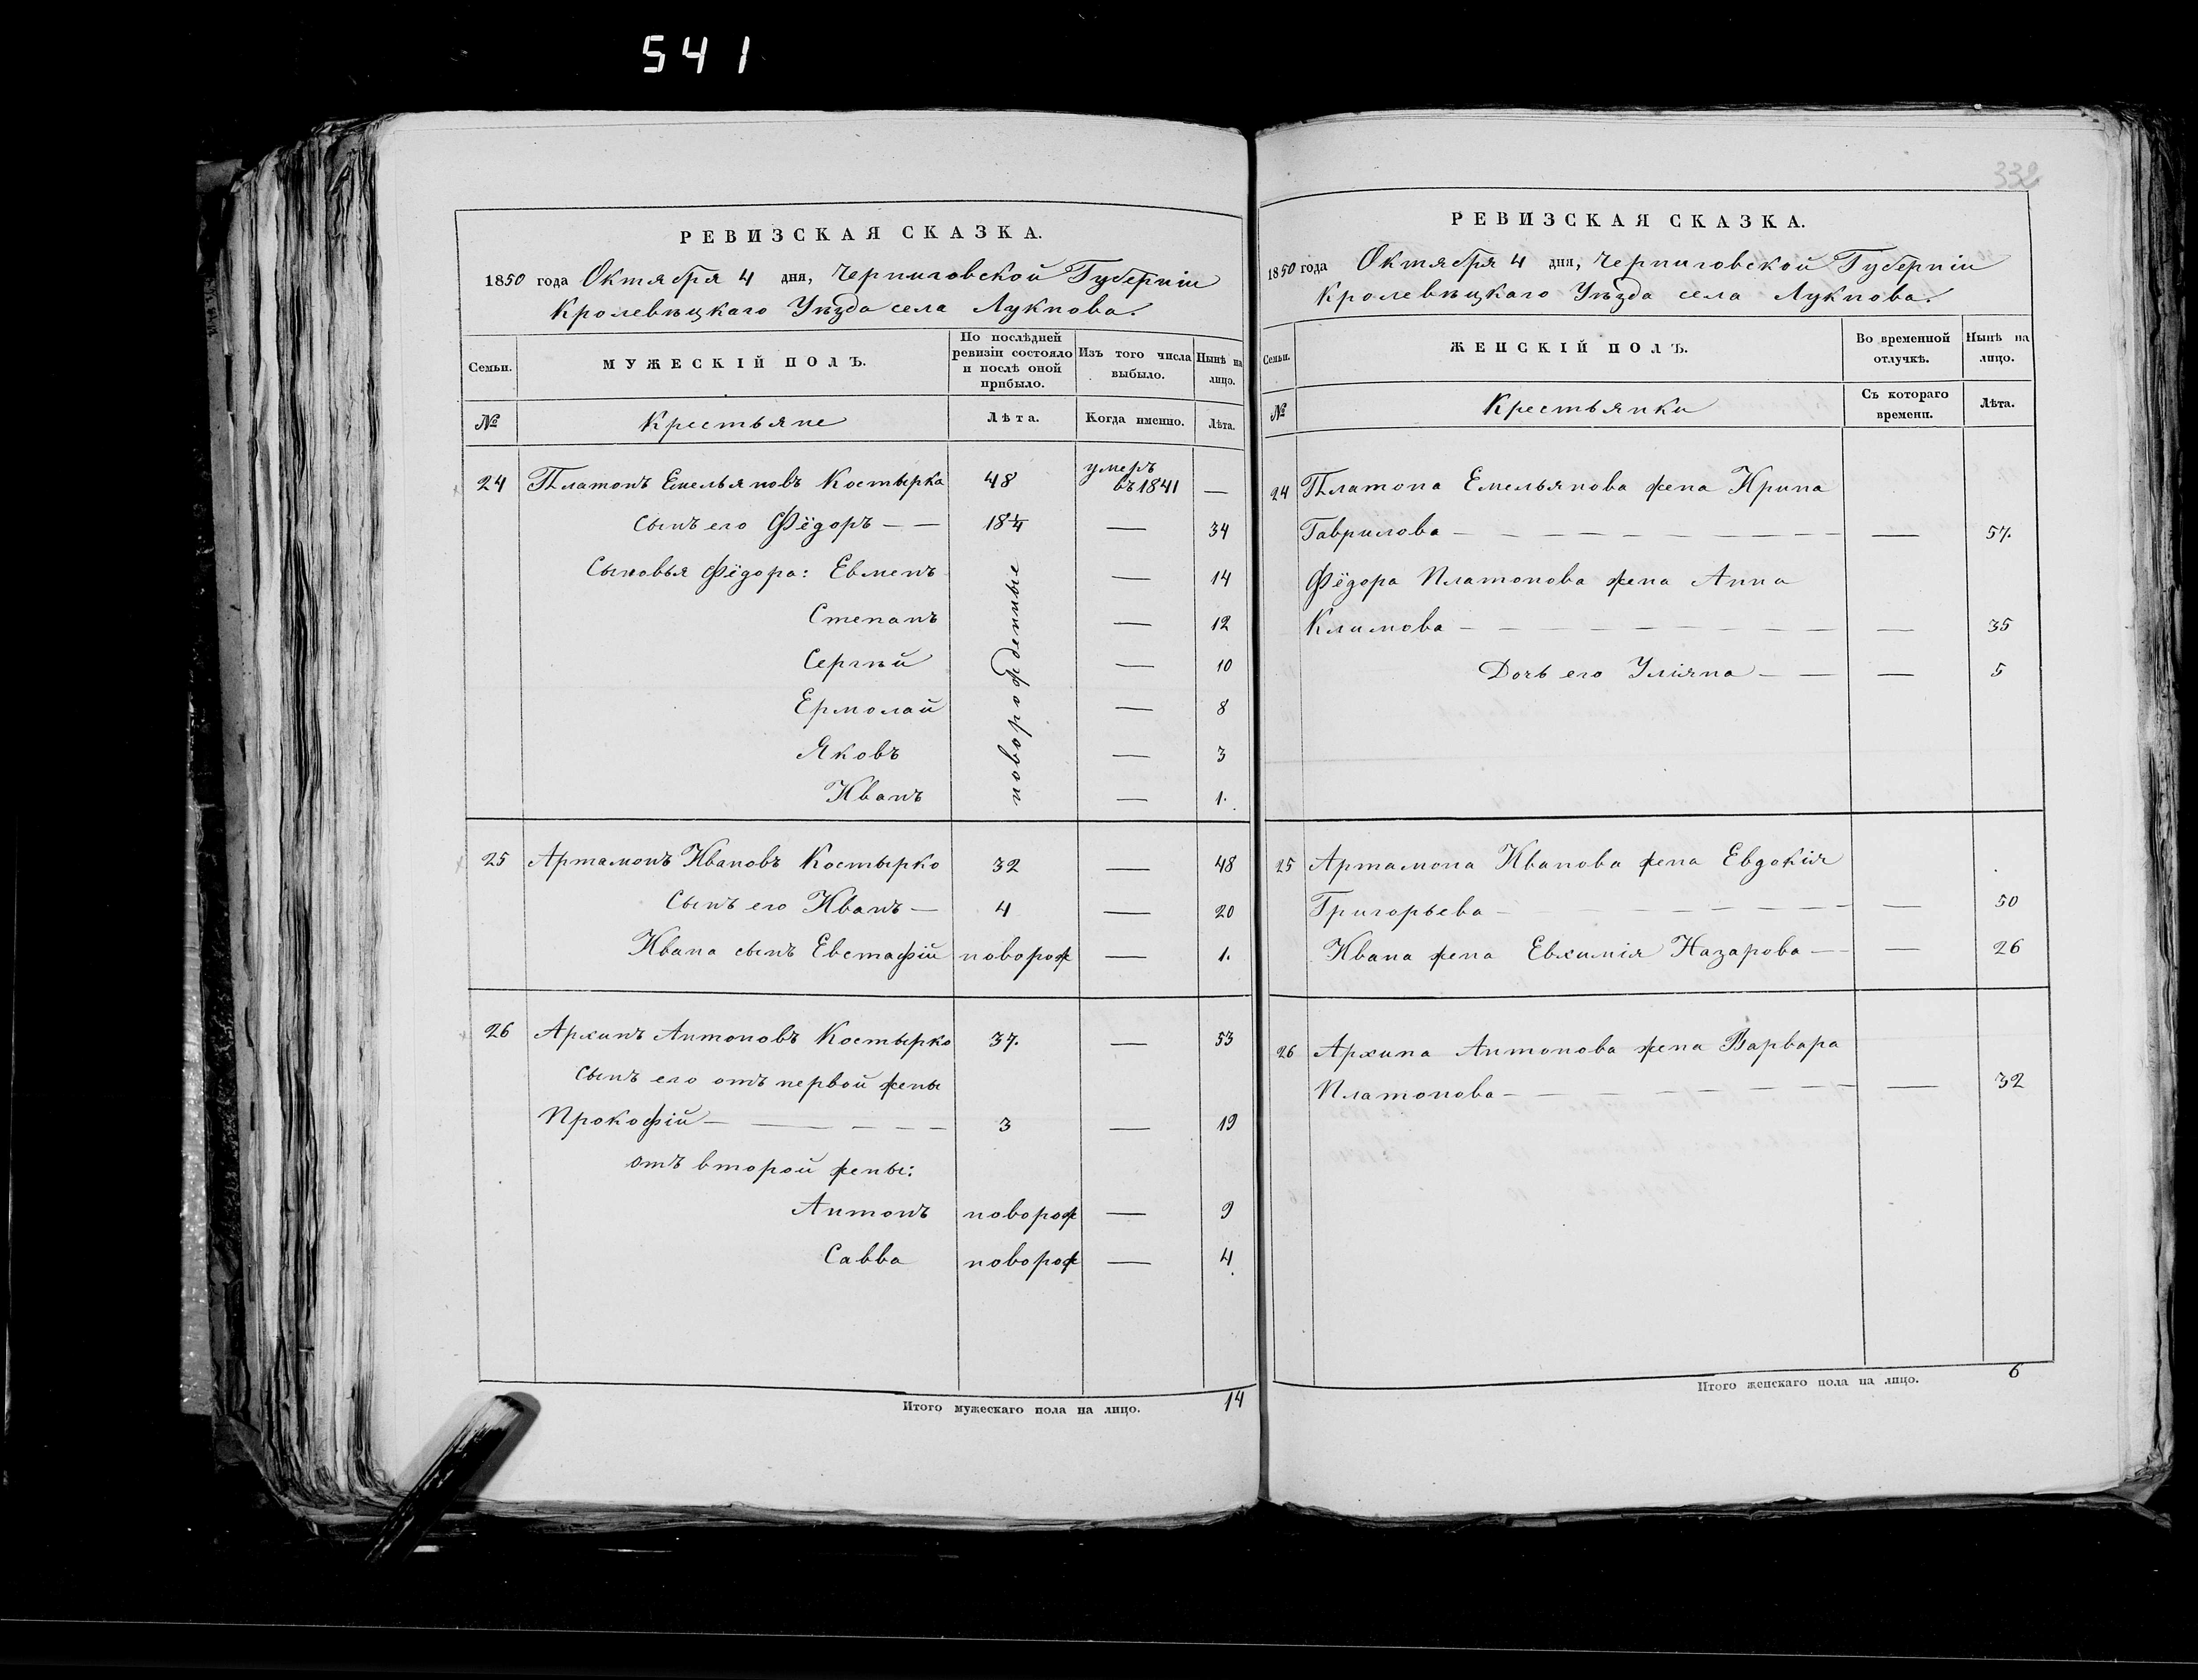 541
332
РЕВИЗСКАЯ СКАЗКА.
1850 года Октября 4 дня, Черниговской Губерніи
Кролевѣцкаго Уѣзда села Лукнова.
Семьи.
МУЖЕСКІЙ ПОЛЪ.
По послѣдней ревизіи состояло и послѣ оной прибыло.
Изъ того числа выбыло.
Нынѣ на лицо.
№
Крестьяне
Лѣта.
Когда именно.
Лѣта.
24 Платонъ Емельяновъ Костырка 48 умеръ въ 1841 —
сынъ его Фёдоръ — — 18¼ — 34
Сыновья Фёдора: Евменъ — 14
Степанъ — 12
Сергѣй — 10
Ермолай — 8
Яковъ — 3
Иванъ — 1.
новорожденные
25 Артамонъ Ивановъ Костырко 32 — 48
Сынъ его Иванъ — 4 — 20
Ивана сынъ Евстафій новорож — 1.
26 Архипъ Антоновъ Костырко 37. — 53
сынъ его отъ первой жены
Прокофій — — — — — 3 — 19
отъ второй жены:
Антонъ новорож — 9
Савва новорож — 4
Итого мужескаго пола на лицо. 14
РЕВИЗСКАЯ СКАЗКА.
1850 года Октября 4 дня, Черниговской Губерніи
Кролевѣцкаго Уѣзда села Лукнова.
Семьи.
ЖЕНСКІЙ ПОЛЪ.
Во временной отлучкѣ.
Нынѣ на лицо.
№
Крестьянки
Съ котораго времени.
Лѣта.
24 Платона Емельянова жена Ирина
Гаврилова — — — — — — — — — — 57.
Фёдора Платонова жена Анна
Климова — — — — — — — — — 35
Дочь его Уліяна — — — 5
25 Артамона Иванова жена Евдокія
Григорьева — — — — — — 50
Ивана жена Евхимія Назарова — — — 26
26 Архипа Антонова жена Варвара
Платонова — — — — — — — 32
Итого женскаго пола на лицо. 6